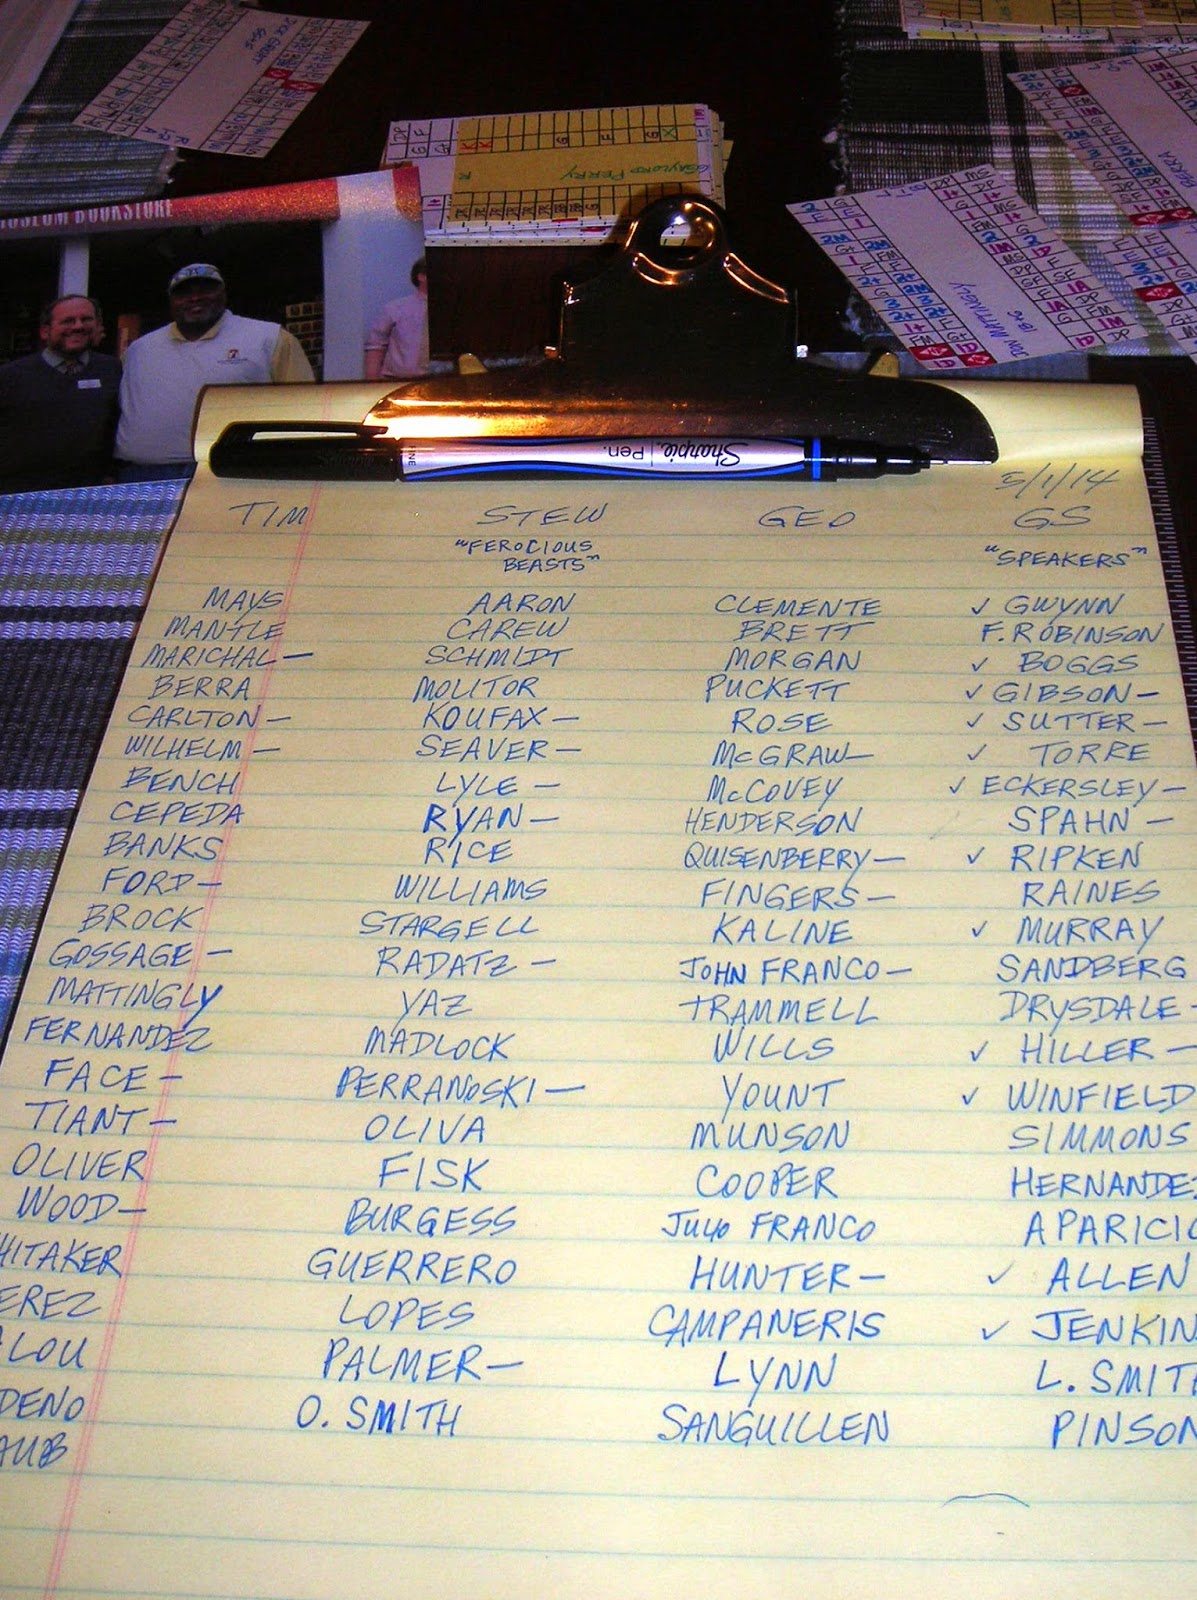 BOOKSTORE
GAYLORD PERRY
DON MATTINGLY
Sharpie. Pen.
5/1/14
TIM STEW GEO GS
"FEROCIOUS BEASTS" "SPEAKERS"
MAYS AARON CLEMENTE ✓ GWYNN
MANTLE CAREW BRETT F. ROBINSON
MARICHAL— SCHMIDT MORGAN ✓ BOGGS
BERRA MOLITOR PUCKETT ✓ GIBSON—
CARLTON— KOUFAX— ROSE ✓ SUTTER—
WILHELM— SEAVER— McGRAW— ✓ TORRE
BENCH LYLE— McCOVEY ✓ ECKERSLEY—
CEPEDA RYAN— HENDERSON SPAHN—
BANKS RICE QUISENBERRY— ✓ RIPKEN
FORD— WILLIAMS FINGERS— RAINES
BROCK STARGELL KALINE ✓ MURRAY
GOSSAGE— RADATZ— JOHN FRANCO— SANDBERG
MATTINGLY YAZ TRAMMELL DRYSDALE-
FERNANDEZ MADLOCK WILLS ✓ HILLER—
FACE— PERRANOSKI— YOUNT ✓ WINFIELD
TIANT— OLIVA MUNSON SIMMONS
OLIVER FISK COOPER HERNANDEZ
WOOD— BURGESS JULIO FRANCO APARICIO
HITAKER GUERRERO HUNTER— ✓ ALLEN
EREZ LOPES CAMPANERIS ✓ JENKIN
LOU PALMER— LYNN L. SMITH
DENO O. SMITH SANGUILLEN PINSON
AUB